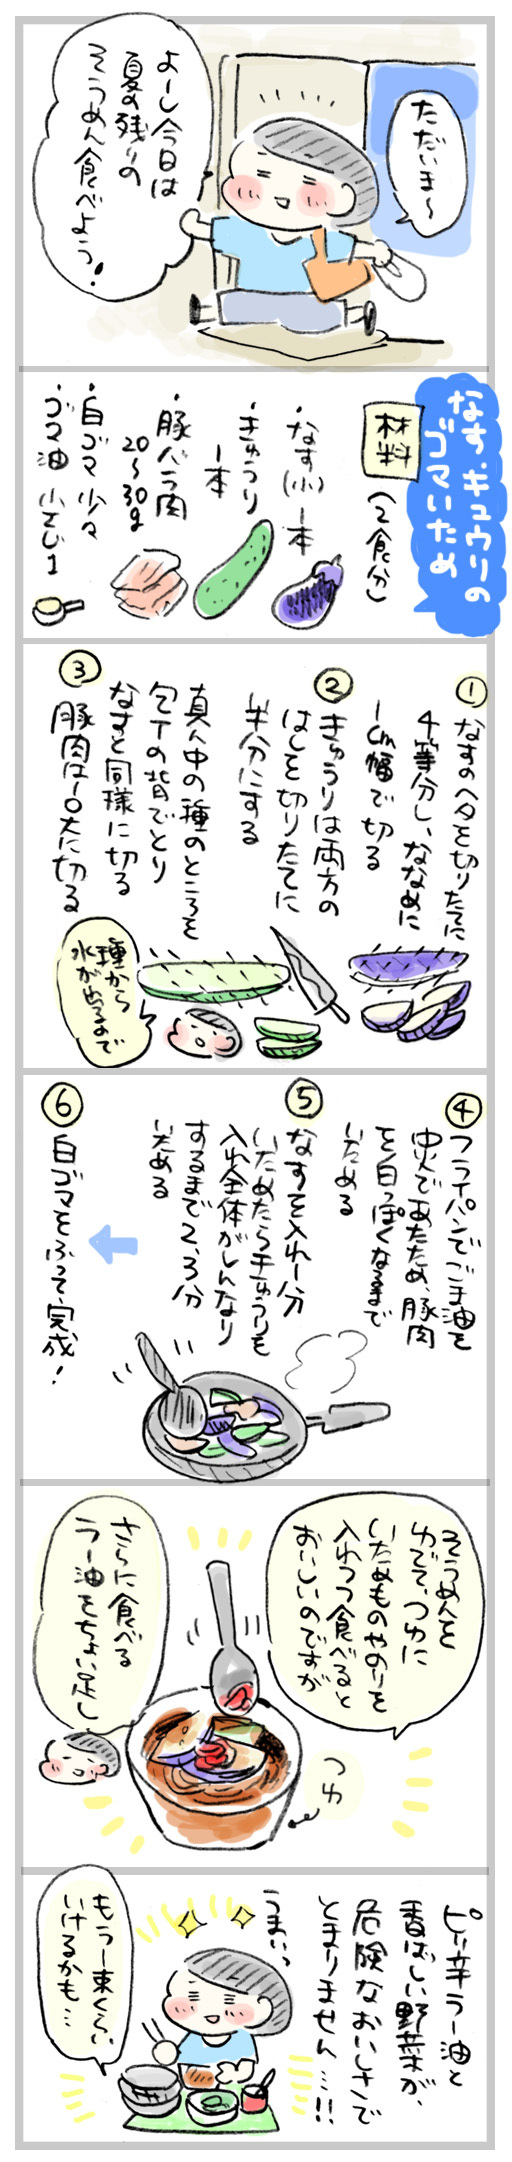 ただいま〜
よーし今日は
夏の残りの
そうめん食べよう!
なす・キュウリの
ゴマいため
材料
(2食分)
・なす(小)1本
・きゅうり
1本
・豚バラ肉
20〜30g
・白ゴマ 少々
・ゴマ油 小さじ1
①
なすのヘタを切りたてに
4等分し、ななめに
1cm幅で切る
②
きゅうりは両方の
はしを切りたてに
半分にする
真ん中の種のところを
包丁の背でとり
なすと同様に切る
③
豚肉は一口大に切る
種から
水が出るので
④
フライパンでごま油を
中火であたため、豚肉
を白っぽくなるまで
いためる
⑤
なすを入れ1分
いためたらきゅうりを
入れ全体がしんなり
するまで2、3分
いためる
⑥
白ゴマをふって、完成!
そうめんを
ゆでて、つゆに
いためものやのりを
入れつつ食べると
おいしいのですが
さらに食べる
ラー油をちょい足し
つゆ
ピリ辛ラー油と
香ばしい野菜が、
危険なおいしさで
とまりません…!!
うまいっ
もう一束くらい
いけるかも…